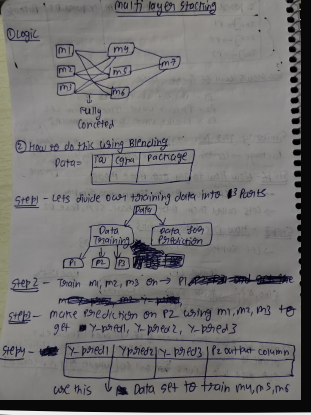 multi layer stacking
① Logic
m1 m4
m2 m5 m7
m3 m6
Fully
Conccted
② How to do this using Blending
Data= IQ Cgpa package
Step1 - Lets divide our training data into 3 Parts
Data
Data Training Data for Prediction
P1 P2 P3
Step 2 - Train m1, m2, m3 on → P1
Step3 - make Prediction on P2 using m1, m2, m3 to
get y-pred1, y-pred2, y-pred3
Step4 - y-pred1 y pred2 y-pred3 P2 output column
use this Data set to train m4, m5, m6